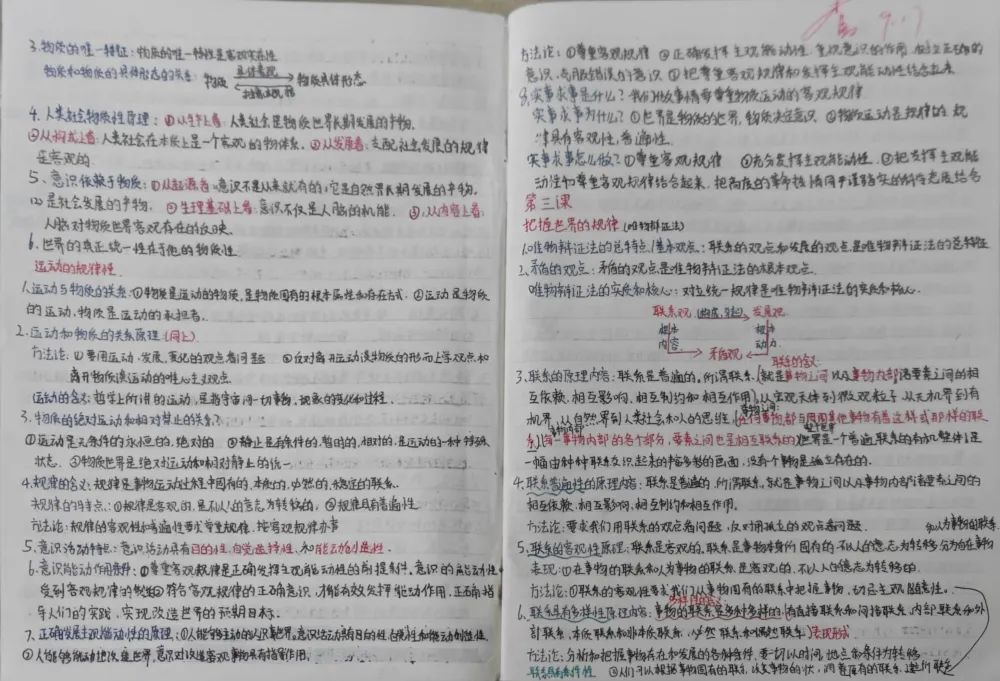 3.物质的唯一特征:物质的唯一特性是客观实在性
物质和物质的具体形态的关系: 物质 具体表现 物质具体形态
4.人类社会物质性原理:①从产生上看:人类社会是物质世界长期发展的产物.
②从构成上看:人类社会在本质上是一个客观的物体系. ③从发展看:支配社会发展的规律
是客观的.
5.意识依赖于物质:①从起源看:意识不是从来就有的,它是自然界长期发展的产物.
是社会发展的产物. ②生理基础上看:意识不仅是人脑的机能. ③从内容上看:
人脑对物质世界客观存在的反映.
6.世界的真正统一性在于他的物质性
运动的规律性
1.运动与物质的关系:①物质是运动的物质,是物质固有的根本属性和存在方式. ②运动是物质
的运动,物质是运动的承担者.
2.运动和物质的关系原理(同上)
方法论:①要用运动,发展,变化的观点看问题 ②反对离开运动谈物质的形而上学观点和
离开物质谈运动的唯心主义观点.
运动的含义:哲学上所讲的运动,是指宇宙间一切事物,现象的变化和过程.
3.物质的绝对运动和相对静止的关系?
①运动是无条件的永恒的,绝对的 ②静止是有条件的,暂时的,相对的,是运动的一种特殊
状态. ③物质世界是绝对运动和相对静止的统一
4.规律的含义:规律是事物运动过程中固有的,本质的,必然的,稳定的联系.
规律的特点:①规律是客观的,是不以人的意志为转移的,②规律具有普遍性
方法论:规律的客观性和普遍性要求尊重规律,按客观规律办事
5.意识活动特点:意识活动具有目的性,自觉选择性,和能动创造性.
6.意识能动作用条件:①尊重客观规律是正确发挥主观能动性的前提条件.意识的能动性
受到客观规律的制约②符合客观规律的正确意识,才能有效发挥能动作用,正确指
导人们的实践,实现改造世界的预期目标.
7.正确发挥主观能动性的原理:①人能够能动的认识世界.意识活动有目的性,自觉性和能动创造性.
②人能够能动地改造世界.意识对改造客观事物具有指导作用.
9.17
方法论:①尊重客观规律 ②正确发挥主观能动性,重视意识的作用,树立正确的
意识,克服错误的意识 ③把尊重客观规律和发挥主观能动性结合起来
8.实事求是是什么?我们做事情要尊重物质运动的客观规律
实事求是为什么?①世界是物质的世界,物质决定意识 ②物质运动是有规律的 规
律具有客观性,普遍性.
实事求是怎么做?①尊重客观规律 ②充分发挥主观能动性. ③把发挥主观能
动性和尊重客观规律结合起来,把高度的革命热情同严谨踏实的科学态度结合
第三课
把握世界的规律(唯物辩证法)
1.唯物辩证法的总特点/基本观点:联系的观点和发展的观点是唯物辩证法的总特征
2.矛盾的观点:矛盾的观点是唯物辩证法的根本观点.
唯物辩证法的实质和核心:对立统一规律是唯物辩证法的实质和核心.
联系观 发展观
根本 根本
内容 动力
矛盾观
联系的含义
3.联系的原理内容:联系是普遍的,所谓联系,就是事物之间以及事物内部诸要素之间的相
互依赖,相互影响,相互制约和相互作用,从宏观天体到微观粒子,从无机界到有
机界,从自然界到人类社会和人的思维,任何事物都与周围其他事物有着这样或那样的联
系,每一事物内部的各个部分,要素之间也是相互联系的,世界是一个普遍联系的有机整体,是
一幅由种种联系交织起来的丰富多彩的画面,没有一个事物是孤立存在的.
4.联系普遍性的原理内容:联系是普遍的,所谓联系,就是事物之间以及事物内部诸要素之间的
相互依赖,相互影响,相互制约和相互作用.
方法论:要求我们用联系的观点看问题,反对用孤立的观点看问题.
5.联系的客观性原理:联系是客观的,联系是事物本身所固有的,不以人的意志为转移 分为自在事物
表现:①自在事物的联系和人为事物的联系是客观的,不以人的意志为转移的.
方法论:①联系的客观性,要求我们从事物固有的联系中把握事物,切忌主观随意性.
6.联系具有多样性原理内容:事物的联系是多种多样的,有直接联系和间接联系,内部联系和外
部联系,本质联系和非本质联系,必然联系和偶然联系.
方法论:分析和把握事物存在和发展的各种条件.要一切以时间,地点,条件为转移
②人们可以根据事物固有的联系,改变事物的状,调整原有的联系,建立新联系